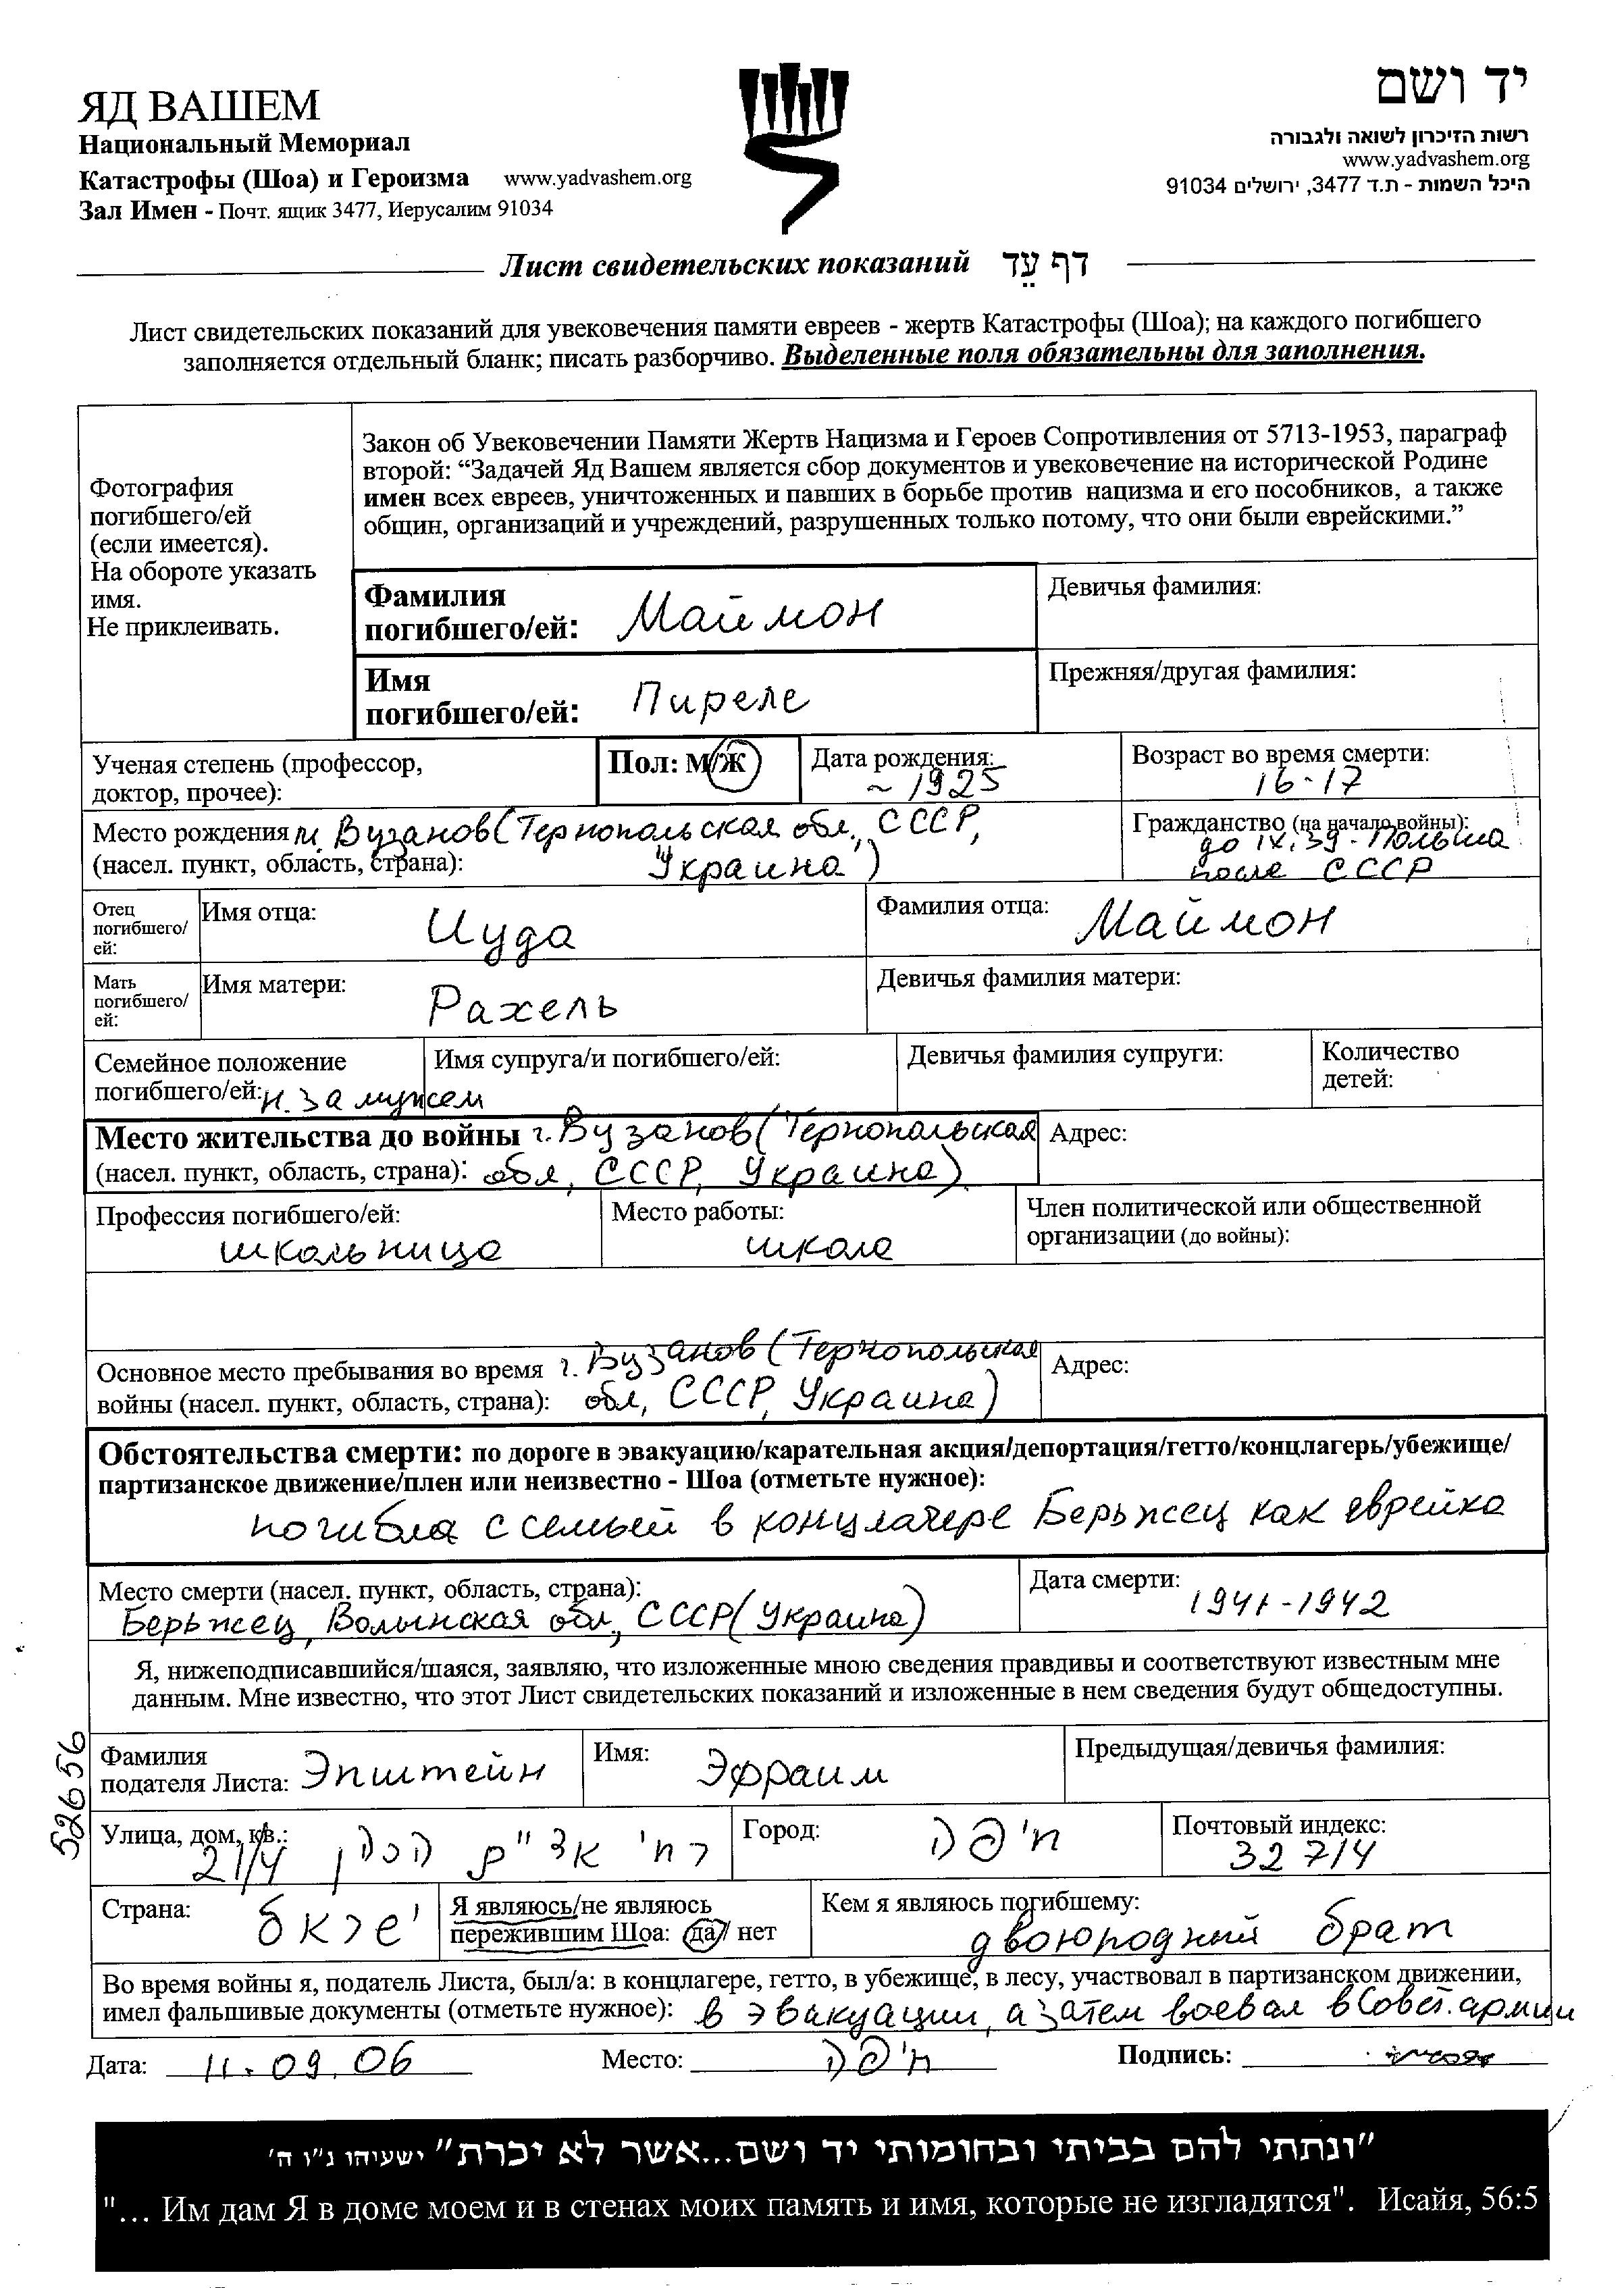 ЯД ВАШЕМ
Национальный Мемориал
Катастрофы (Шоа) и Героизма www.yadvashem.org
Зал Имен - Почт. ящик 3477, Иерусалим 91034
יד ושם
רשות הזיכרון לשואה ולגבורה
www.yadvashem.org
היכל השמות - ת.ד 3477, ירושלים 91034
Лист свидетельских показаний דף עֵד
Лист свидетельских показаний для увековечения памяти евреев - жертв Катастрофы (Шоа); на каждого погибшего
заполняется отдельный бланк; писать разборчиво. Выделенные поля обязательны для заполнения.
Фотография
погибшего/ей
(если имеется).
На обороте указать
имя.
Не приклеивать.
Закон об Увековечении Памяти Жертв Нацизма и Героев Сопротивления от 5713-1953, параграф
второй: “Задачей Яд Вашем является сбор документов и увековечение на исторической Родине
имен всех евреев, уничтоженных и павших в борьбе против нацизма и его пособников, а также
общин, организаций и учреждений, разрушенных только потому, что они были еврейскими.”
Фамилия
погибшего/ей: Маймон
Девичья фамилия:
Имя
погибшего/ей: Пиреле
Прежняя/другая фамилия:
Ученая степень (профессор,
доктор, прочее):
Пол: М/Ж
Дата рождения:
~ 1925
Возраст во время смерти:
16-17
Место рождения м. Вузанов (Тернопольская обл., СССР,
(насел. пункт, область, страна): Украина)
Гражданство (на начало войны):
до IX.39 - Польша
после СССР
Отец
погибшего/
ей:
Имя отца: Иуда
Фамилия отца: Маймон
Мать
погибшего/
ей:
Имя матери: Рахель
Девичья фамилия матери:
Семейное положение
погибшего/ей: н. замужем
Имя супруга/и погибшего/ей:
Девичья фамилия супруги:
Количество
детей:
Место жительства до войны г. Вузанов (Тернопольская
(насел. пункт, область, страна): обл, СССР, Украина)
Адрес:
Профессия погибшего/ей:
школьница
Место работы:
школа
Член политической или общественной
организации (до войны):
Основное место пребывания во время г. Вузанов (Тернопольская
войны (насел. пункт, область, страна): обл, СССР, Украина)
Адрес:
Обстоятельства смерти: по дороге в эвакуацию/карательная акция/депортация/гетто/концлагерь/убежище/
партизанское движение/плен или неизвестно - Шоа (отметьте нужное):
погибла с семьей в концлагере Берьжец как еврейка
Место смерти (насел. пункт, область, страна):
Берьжец, Волынская обл., СССР (Украина)
Дата смерти:
1941-1942
Я, нижеподписавшийся/шаяся, заявляю, что изложенные мною сведения правдивы и соответствуют известным мне
данным. Мне известно, что этот Лист свидетельских показаний и изложенные в нем сведения будут общедоступны.
52656
Фамилия
подателя Листа: Эпштейн
Имя: Эфраим
Предыдущая/девичья фамилия:
Улица, дом, кв.:
רח' אצ"ק הכהן 21/4
Город: חיפה
Почтовый индекс:
32714
Страна: ישראל
Я являюсь/не являюсь
пережившим Шоа: да / нет
Кем я являюсь погибшему:
двоюродный брат
Во время войны я, податель Листа, был/а: в концлагере, гетто, в убежище, в лесу, участвовал в партизанском движении,
имел фальшивые документы (отметьте нужное): в эвакуации, а затем воевал в Совет. армии
Дата: 11.09.06 Место: חיפה Подпись:
"ונתתי להם בביתי ובחומותי יד ושם...אשר לא יכרת" ישעיהו נ"ו ה'
"... Им дам Я в доме моем и в стенах моих память и имя, которые не изгладятся". Исайя, 56:5